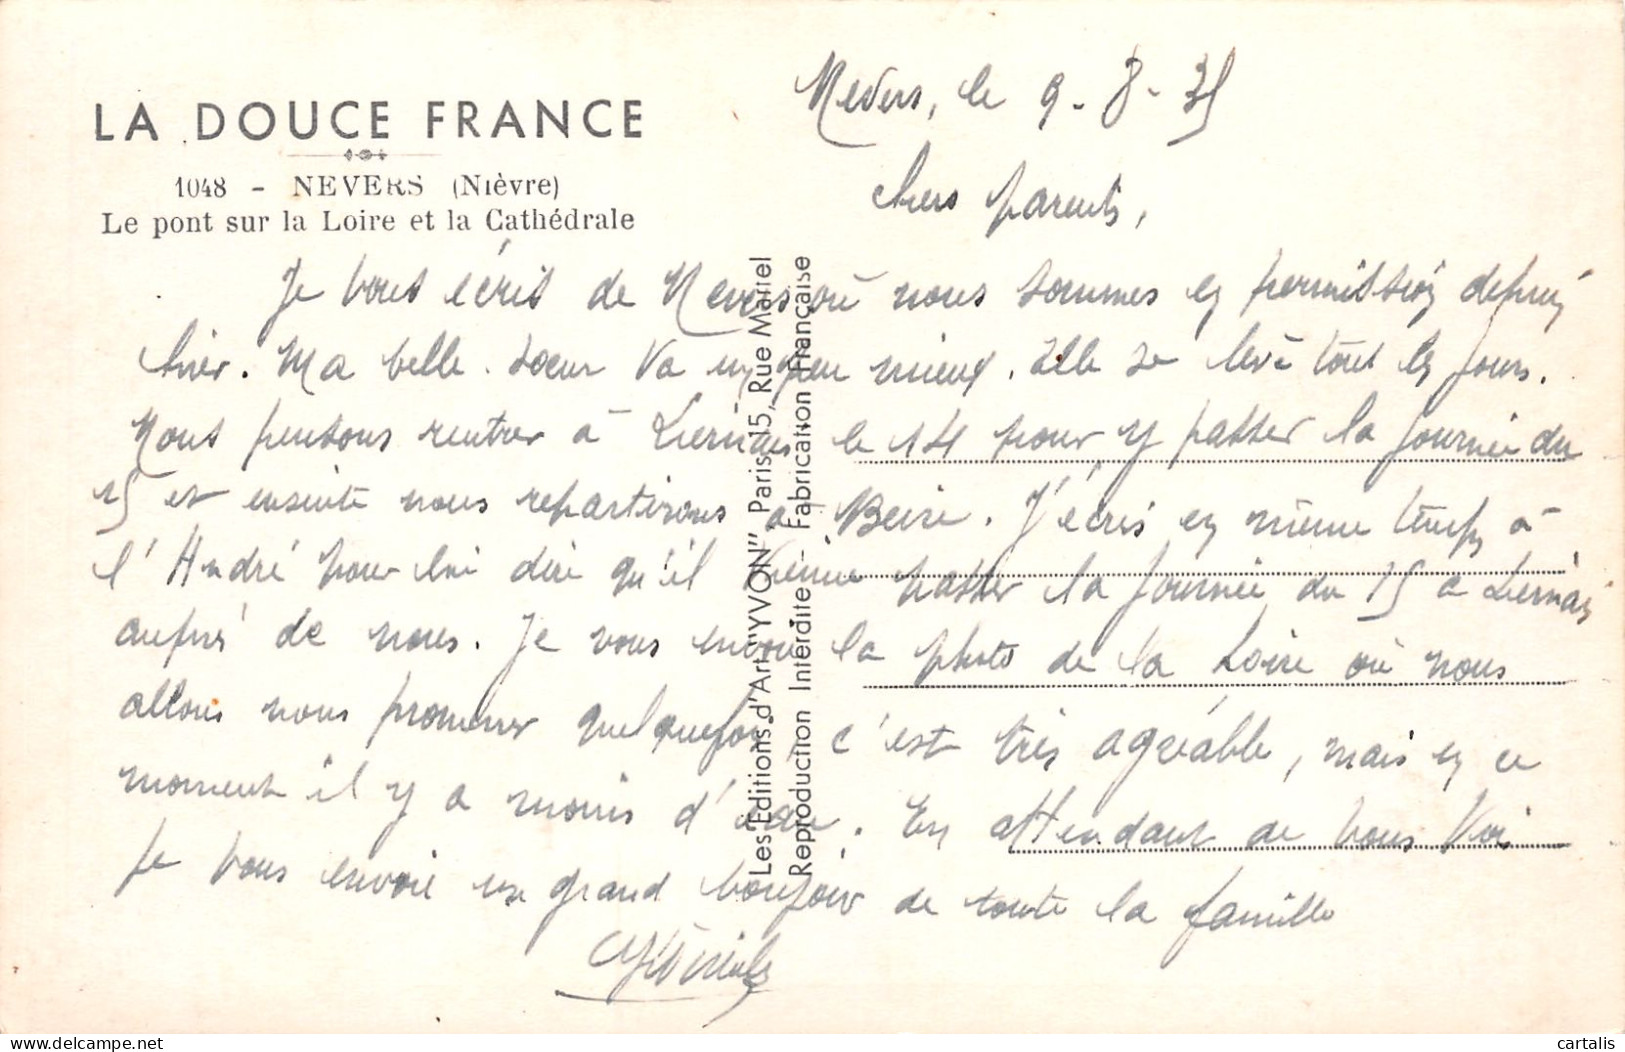 LA DOUCE FRANCE
1048 - NEVERS (Nièvre)
Le pont sur la Loire et la Cathédrale
Nevers, le 9-8-35
Chers parents,
Je vous écris de Nevers où nous sommes en permission depuis
hier. Ma belle-soeur va un peu mieux. Elle se lève tous les jours.
Nous pensons rentrer à Lernais le 14 pour y passer la journée du
15 et ensuite nous repartirons à Beire. J'écris en même temps à
l'André pour lui dire qu'il vienne passer la journée du 15 à Lernais
auprès de nous. Je vous envoie la photo de la Loire où nous
allons nous promener quelquefois, c'est très agréable, mais en ce
moment il y a moins d'eau. En attendant de vous voir
je vous envoie un grand bonjour de toute la famille
Les Editions d'Art "YVON", Paris, 15, Rue Martel
Reproduction Interdite - Fabrication Française
cartalis